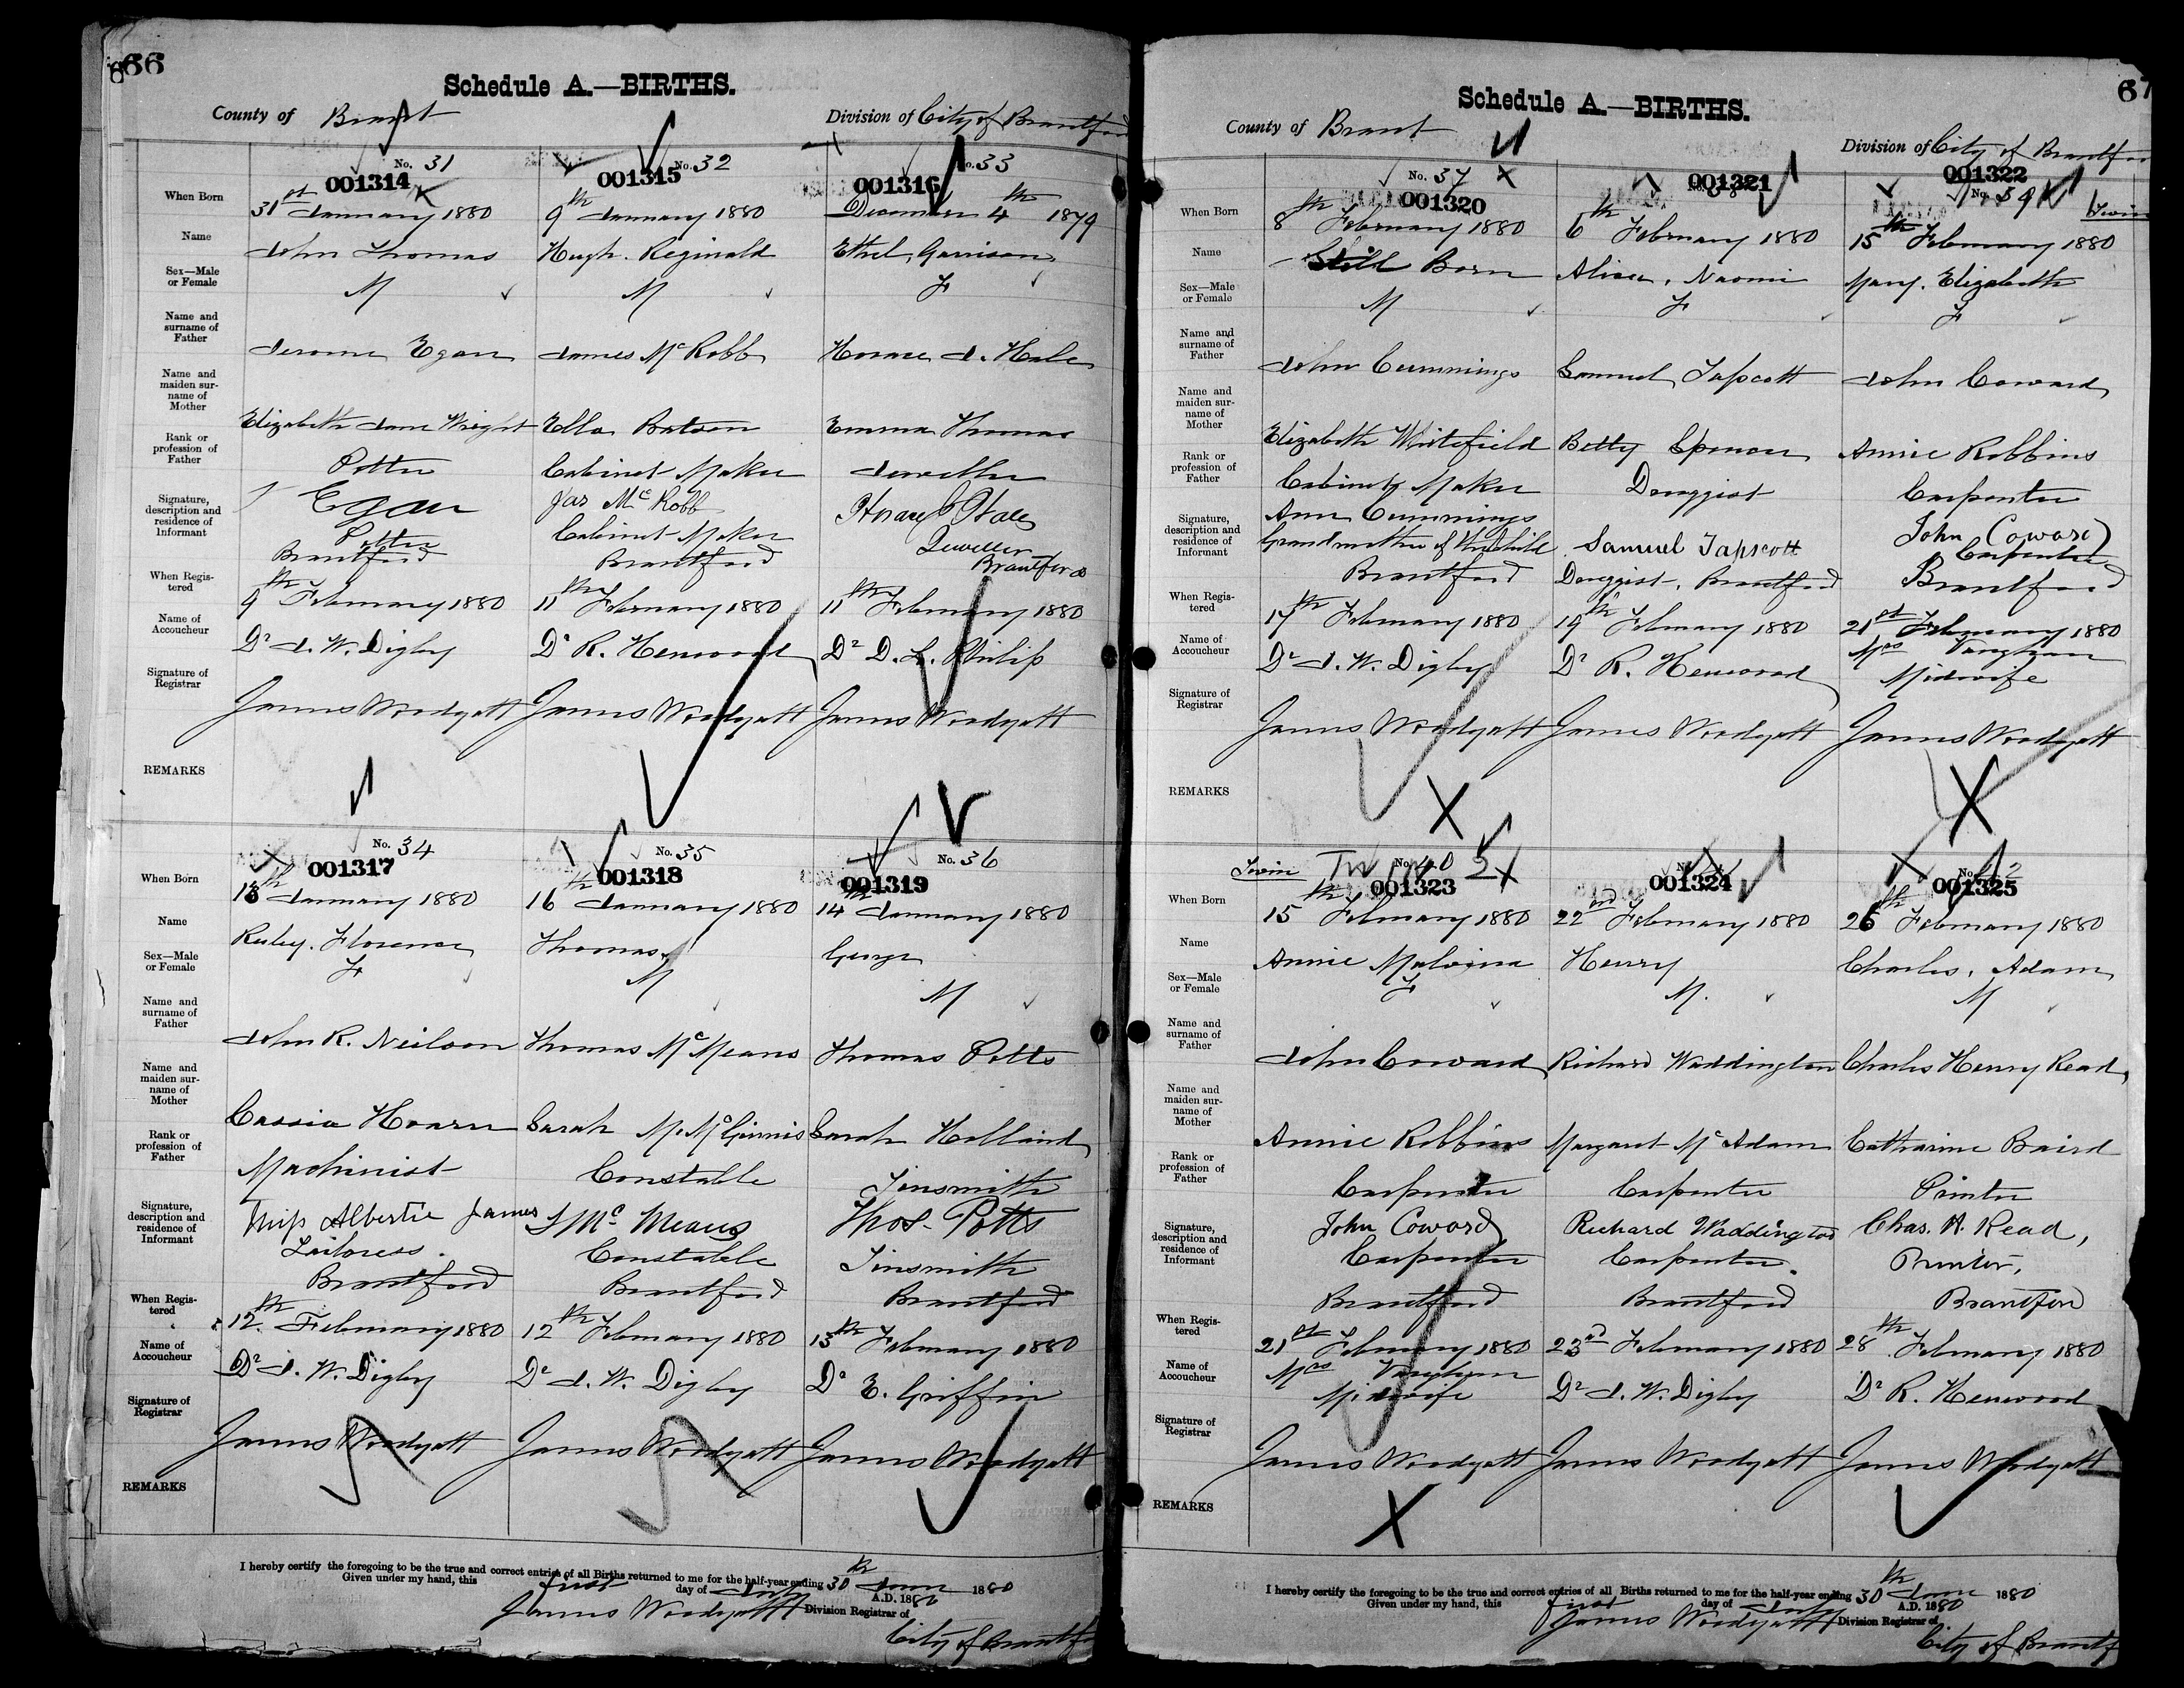 66
Schedule A.—BIRTHS.
County of Brant
Division of City of Brantford
No. 31
001314
No. 32
001315
No. 33
001316
When Born
31st January 1880
9th January 1880
December 4th 1879
Name
John Thomas
Hugh. Reginald
Ethel, Garrison
Sex—Male
or Female
M
M
F
Name and
surname of
Father
Jerome Egan
James McRobb
Horace J. Hale
Name and
maiden sur-
name of
Mother
Elizabeth Jane Wright
Ella Batson
Emma Thomas
Rank or
profession of
Father
Potter
Cabinet Maker
Jeweller
Signature,
description and
residence of
Informant
Egan
Potter
Brantford
Jas McRobb
Cabinet Maker
Brantford
Horace J Hale
Jeweller
Brantford
When Regis-
tered
9th February 1880
11th February 1880
11th February 1880
Name of
Accoucheur
Dr J. W. Digby
Dr R. Henwood
Dr D. L. Philip
Signature of
Registrar
James Woodyatt
James Woodyatt
James Woodyatt
REMARKS
No. 34
001317
No. 35
001318
No. 36
001319
When Born
January 1880
16th January 1880
14th January 1880
Name
Ruby. Florence
Thomas
George
Sex—Male
or Female
F
M
M
Name and
surname of
Father
John R. Neilson
Thomas McMeans
Thomas Potts
Name and
maiden sur-
name of
Mother
Cassia Hoarn
Sarah M. McGinnis
Sarah Holland
Rank or
profession of
Father
Machinist
Constable
Tinsmith
Signature,
description and
residence of
Informant
Miss Albertie James
Tailoress.
Brantford
T Mc Means
Constable
Brantford
Thos. Potts
Tinsmith
Brantford
When Regis-
tered
12th February 1880
12th February 1880
13th February 1880
Name of
Accoucheur
Dr J. W. Digby
Dr J. W. Digby
Dr E. Griffin
Signature of
Registrar
James Woodyatt
James Woodyatt
James Woodyatt
REMARKS
I hereby certify the foregoing to be the true and correct entries of all Births returned to me for the half-year ending 30th June 1880
Given under my hand, this first day of July A.D. 1880
James Woodyatt Division Registrar of
City of Brantford
67
Schedule A.—BIRTHS.
County of Brant
Division of City of Brantford
No. 37
001320
001321
001322
No. 39
Twin
When Born
8th February 1880
6th February 1880
15th February 1880
Name
Still Born
Alice, Naomi
Mary. Elizabeth
Sex—Male
or Female
M
F
F
Name and
surname of
Father
John Cummings
Samuel Tapscott
John Coward
Name and
maiden sur-
name of
Mother
Elizabeth Whitefield
Betty Spencer
Annie Robbins
Rank or
profession of
Father
Cabinet Maker
Druggist
Carpenter
Signature,
description and
residence of
Informant
Ann Cummings
Grandmother of the child
Brantford
Samuel Tapscott
Druggist, Brantford
John Coward
Carpenter
Brantford
When Regis-
tered
17th February 1880
19th February 1880
21st February 1880
Name of
Accoucheur
Dr J. W. Digby
Dr R. Henwood
Mrs Vaughan
Midwife
Signature of
Registrar
James Woodyatt
James Woodyatt
James Woodyatt
REMARKS
Twin
No. 40
001323
001324
001325
When Born
15th February 1880
22nd February 1880
26th February 1880
Name
Annie Malvina
Henry
Charles, Adam
Sex—Male
or Female
F
M.
M
Name and
surname of
Father
John Coward
Richard Waddington
Charles Henry Read
Name and
maiden sur-
name of
Mother
Annie Robbins
Margaret McAdam
Catharine Baird
Rank or
profession of
Father
Carpenter
Carpenter
Printer
Signature,
description and
residence of
Informant
John Coward
Carpenter
Brantford
Richard Waddington
Carpenter.
Brantford
Chas. H. Read,
Printer,
Brantford
When Regis-
tered
21st February 1880
23rd February 1880
28th February 1880
Name of
Accoucheur
Mrs Vaughan
Midwife
Dr J. W. Digby
Dr R. Henwood
Signature of
Registrar
James Woodyatt
James Woodyatt
James Woodyatt
REMARKS
I hereby certify the foregoing to be the true and correct entries of all Births returned to me for the half-year ending 30th June 1880
Given under my hand, this first day of July A.D. 1880
James Woodyatt Division Registrar of
City of Brantf